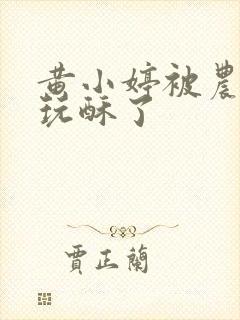 黄小婷被農
玩酥了
賈正蘭